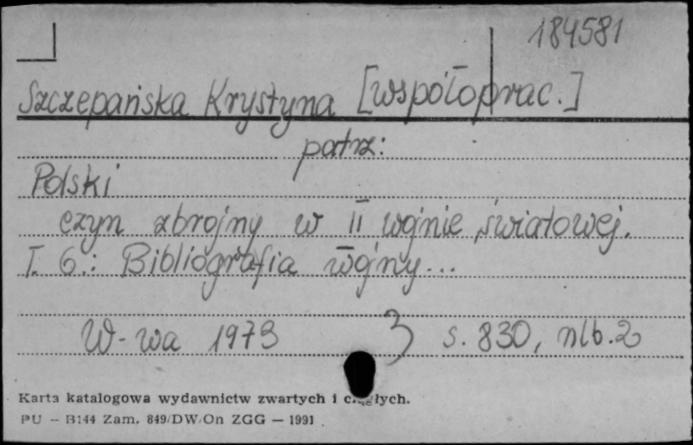 184581
Szczepańska Krystyna [współoprac.]
patrz:
Polski
czyn zbrojny w II wojnie światowej.
T. 6.: Bibliografia wojny...
W-wa 1973 3 s. 830, nlb. 2
Karta katalogowa wydawnictw zwartych i ciągłych.
PU – B144 Zam. 849/DW/On ZGG – 1991